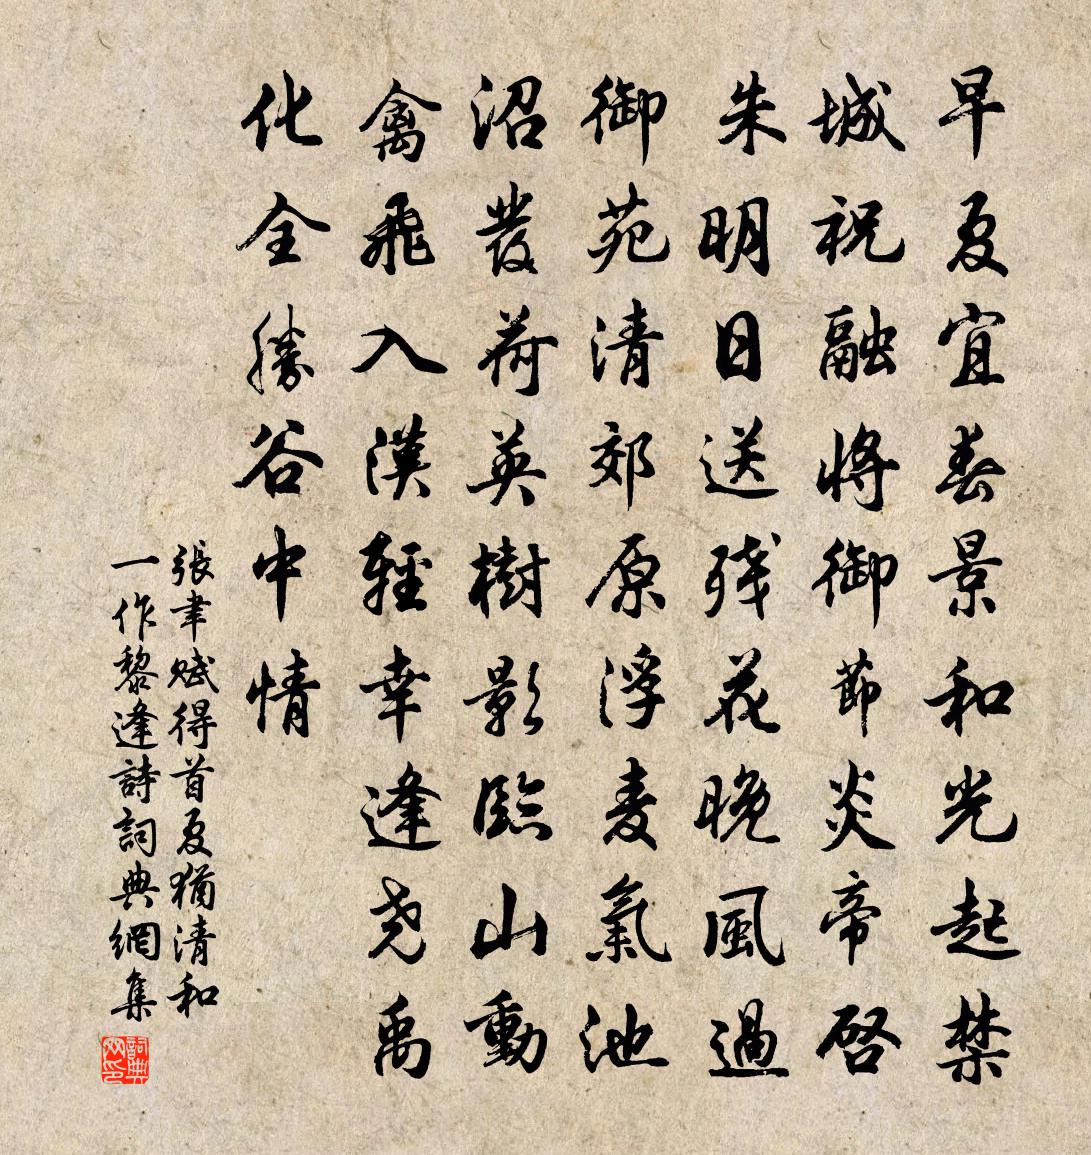 早夏宜春景和光起禁
城祝融將御節炎帝啓
朱明日送殘花晚風過
御苑清郊原浮麦氣池
沼發荷英樹影臨山動
禽飛入漢輕幸逢尧禹
化全勝谷中情
張聿賦得首夏猶清和
一作黎逢詩詞典網集
詞典
网印